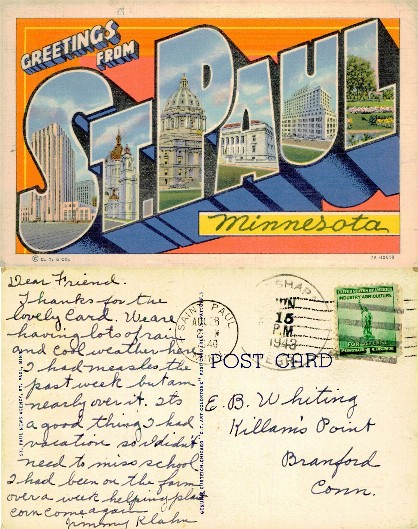 GREETINGS
FROM
ST. PAUL
Minnesota
© C. T. & CO.
Dear Friend.
Thanks for the
lovely Card. We are
having lots of rain
and cool weather here
I had measles the
past week but am
nearly over it. Its
a good thing I had
vacation so didn't
need to miss school
I had been on the farm
over a week helping
corn come again
Jimmy Klahn
SAINT PAUL
15
P.M.
1943
UNITED STATES OF AMERICA
INDUSTRY AGRICULTURE
FOR DEFENSE
POST CARD
E. B. Whiting
Killam's Point
Branford
Conn.